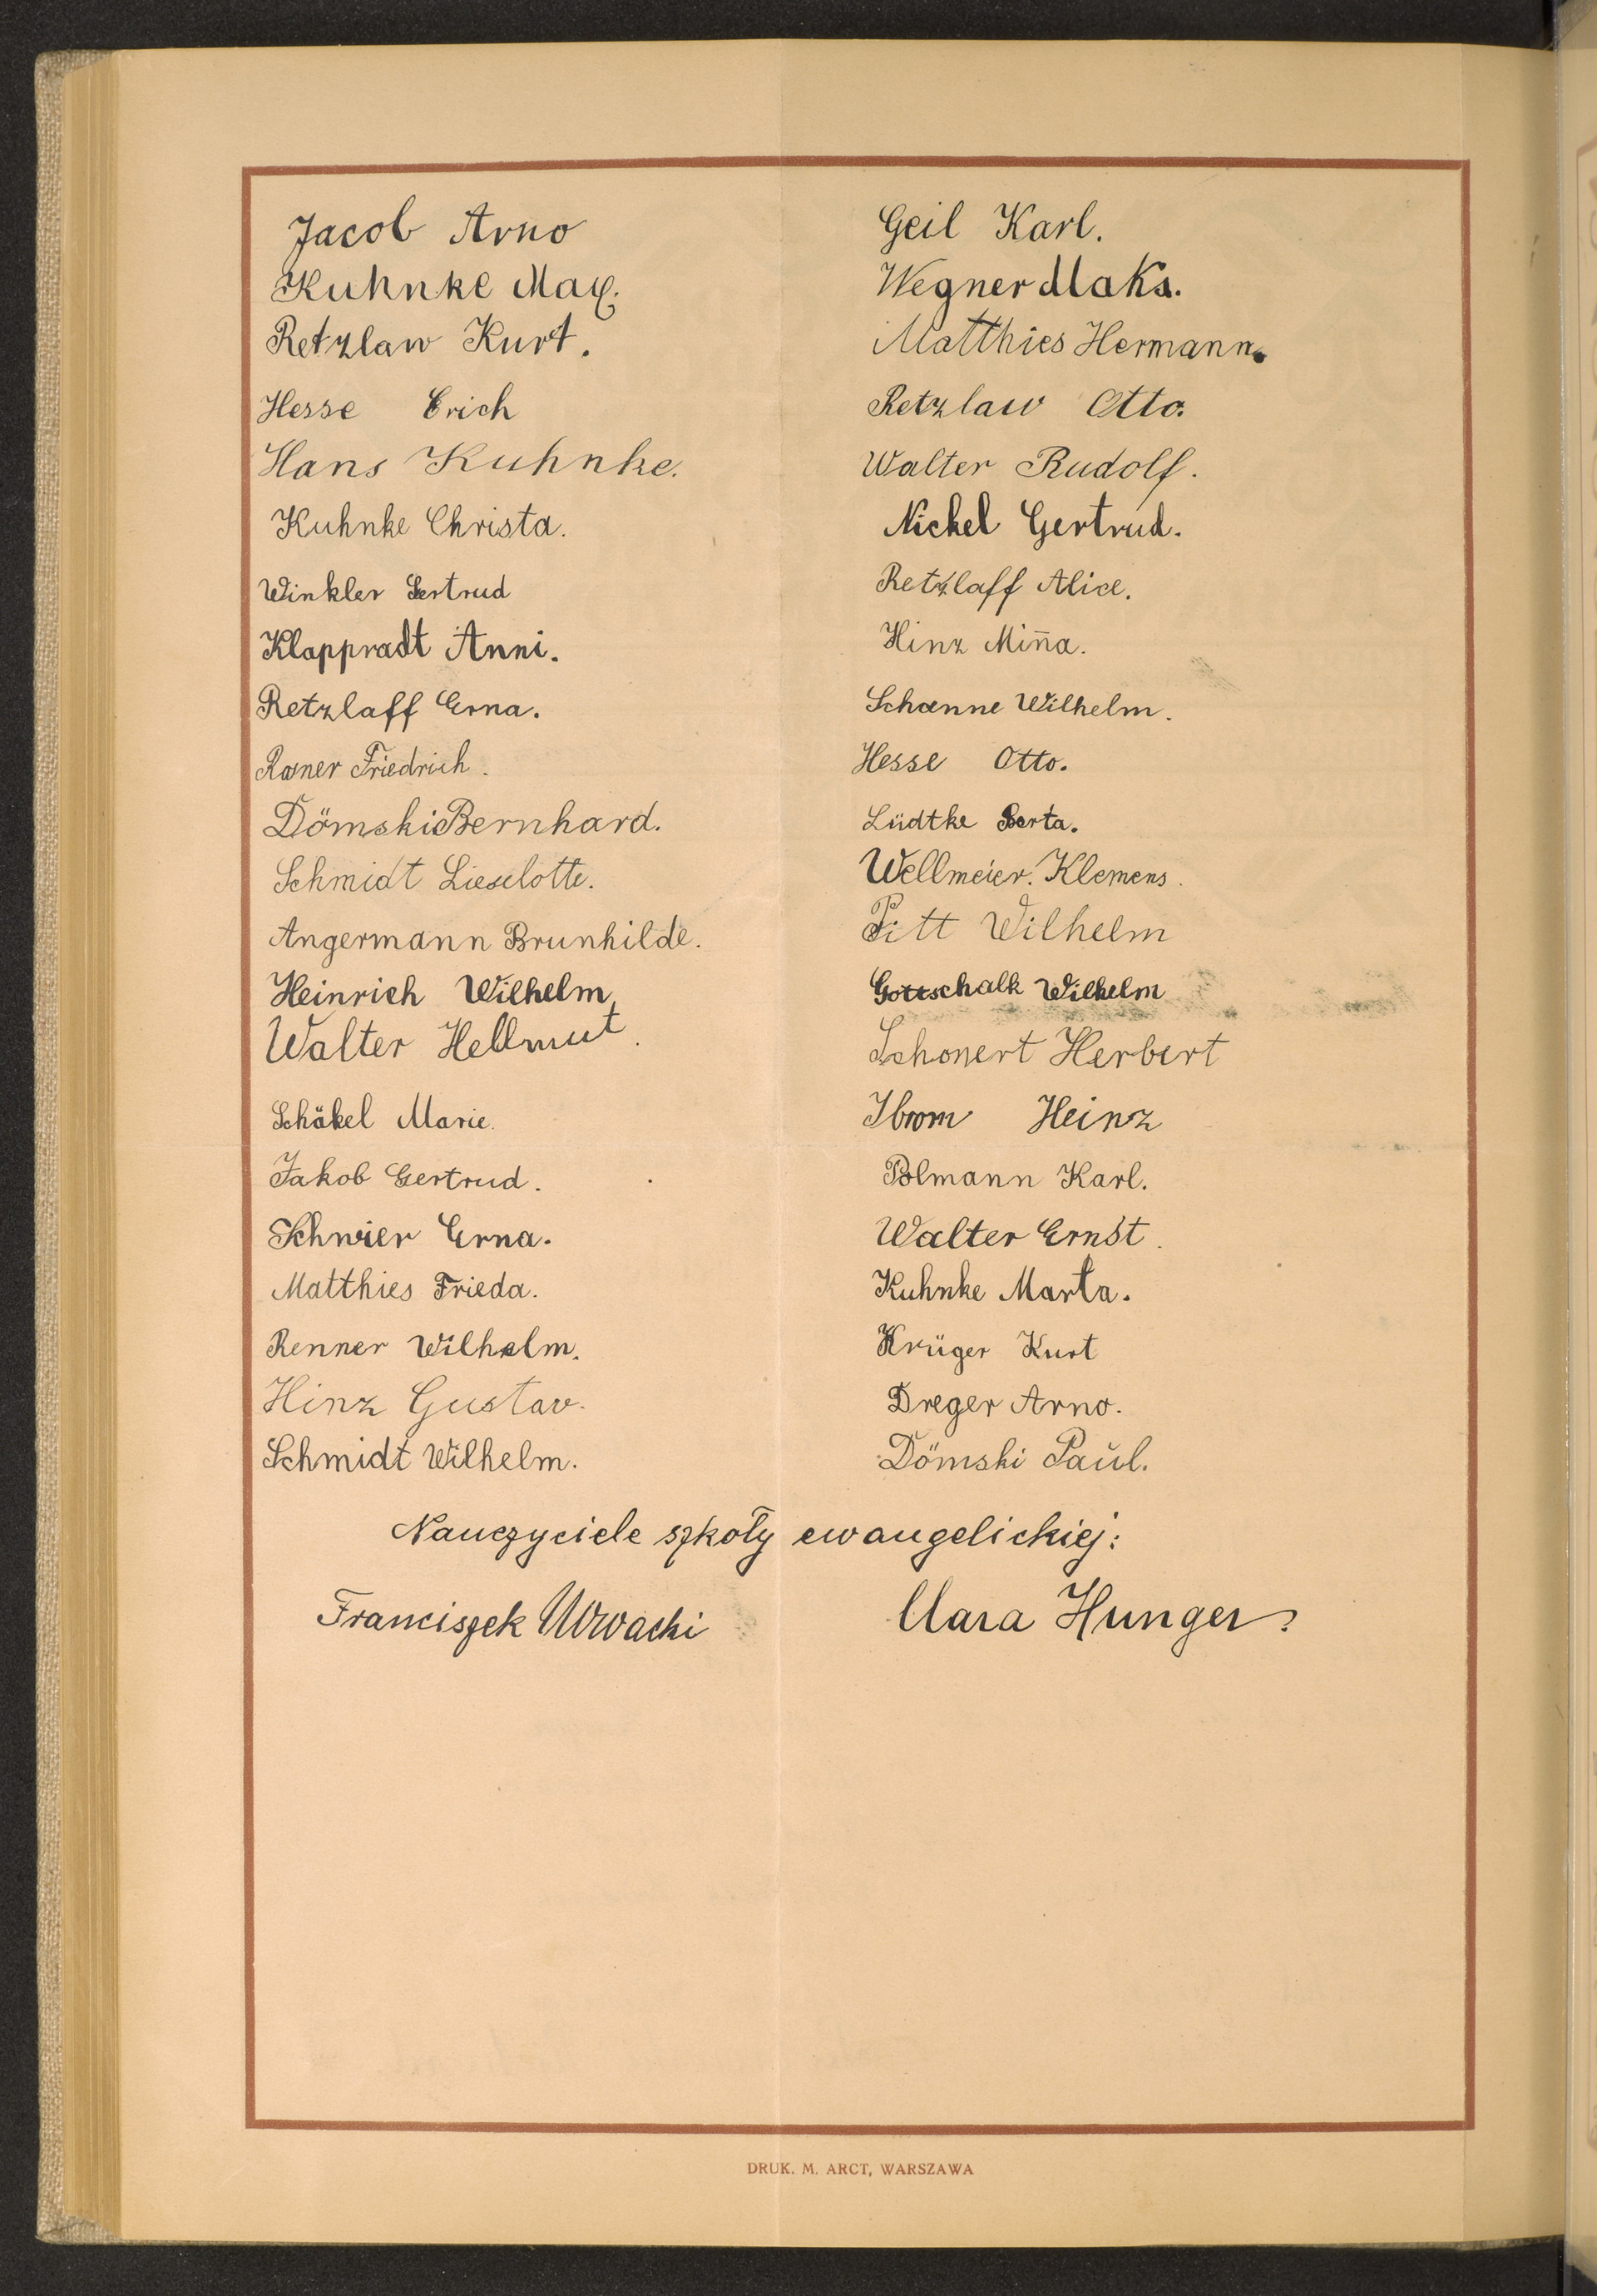 Jacob Arno
Kuhnke Max.
Retzlaw Kurt.
Hesse Erich
Hans Kuhnke.
Kuhnke Christa.
Winkler Gertrud
Klappradt Anni.
Retzlaff Erna.
Rosner Friedrich.
Dömski Bernhard.
Schmidt Lieselotte.
Angermann Brunhilde.
Heinrich Wilhelm.
Walter Hellmut.
Schäkel Marie.
Jakob Gertrud.
Schwier Erna.
Matthies Frieda.
Renner Wilhelm.
Hinz Gustav.
Schmidt Wilhelm.
Geil Karl.
Wegner Maks.
Matthies Hermann.
Retzlaw Otto.
Walter Rudolf.
Nickel Gertrud.
Retzlaff Alice.
Hinz Min̄a.
Schanne Wilhelm.
Hesse Otto.
Lüdtke Berta.
Wellmeier. Klemens.
Pitt Wilhelm
Gottschalk Wilhelm
Schonert Herbert
Ibrom Heinz
Polmann Karl.
Walter Ernst.
Kuhnke Marta.
Krüger Kurt
Dreger Arno.
Dömski Paŭl.
Nauczyciele szkoły ewangelickiej:
Franciszek
Clara Hunger.
DRUK. M. ARCT, WARSZAWA